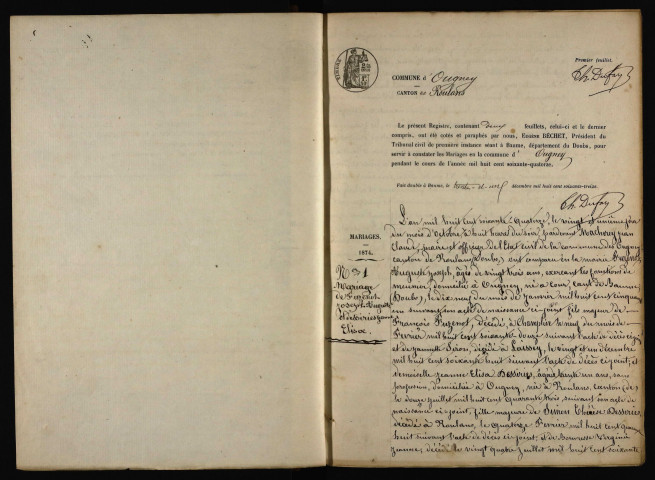 Premier feuillet.
Ch. Dufay
COMMUNE d'Ougney
CANTON de Roulans
Le présent Registre, contenant deux feuillets, celui-ci et le dernier
compris, ont été cotés et paraphés par nous, Eugène BÉCHET, Président du
Tribunal civil de première instance séant à Baume, département du Doubs, pour
servir à constater les Mariages en la commune d'Ougney
pendant le cours de l'année mil huit cent soixante-quatorze.
Fait double à Baume, le trente-et-un décembre mil huit cent soixante-treize.
Ch. Dufay
MARIAGES.
1874.
N° 1
Mariage
de
joseph auguste
et
Elisa.
L'an mil huit cent soixante-quatorze, le vingt et unième jour
du mois d'Octobre, à huit heures du soir, pardevant jean
claude, maire et officier de l'état civil de la commune d'Ougney
canton de Roulans (Doubs), ont comparu en la mairie
Auguste joseph, âgé de vingt trois ans, exerçant les fonctions de
meunier, domicilié à Ougney, né à cour, cant. de Baume
(Doubs), le dix neuf du mois de janvier mil huit cent cinquante
un suivant son acte de naissance ci-joint, fils majeur de
François décédé, à Champlive le neuf du mois de
Février mil huit cent soixante douze suivant l'acte de décès ci-joint
et de jeannette décédée à Laissey, le vingt et un décembre
mil huit cent soixante huit suivant l'acte de décès ci-joint; et
demoiselle jeanne Elisa âgée trente un ans, sans
profession, domiciliée à Ougney, née à Roulans, canton (de)
le douze juillet mil huit cent quarante trois, suivant son acte de
naissance ci-joint, fille majeure de Simon
décédé à Roulans, le quatorze Février mil huit cent
huit suivant l'acte de décès ci-joint, et de Virginie
jeanne, décédée le vingt quatre juillet mil huit cent soixante